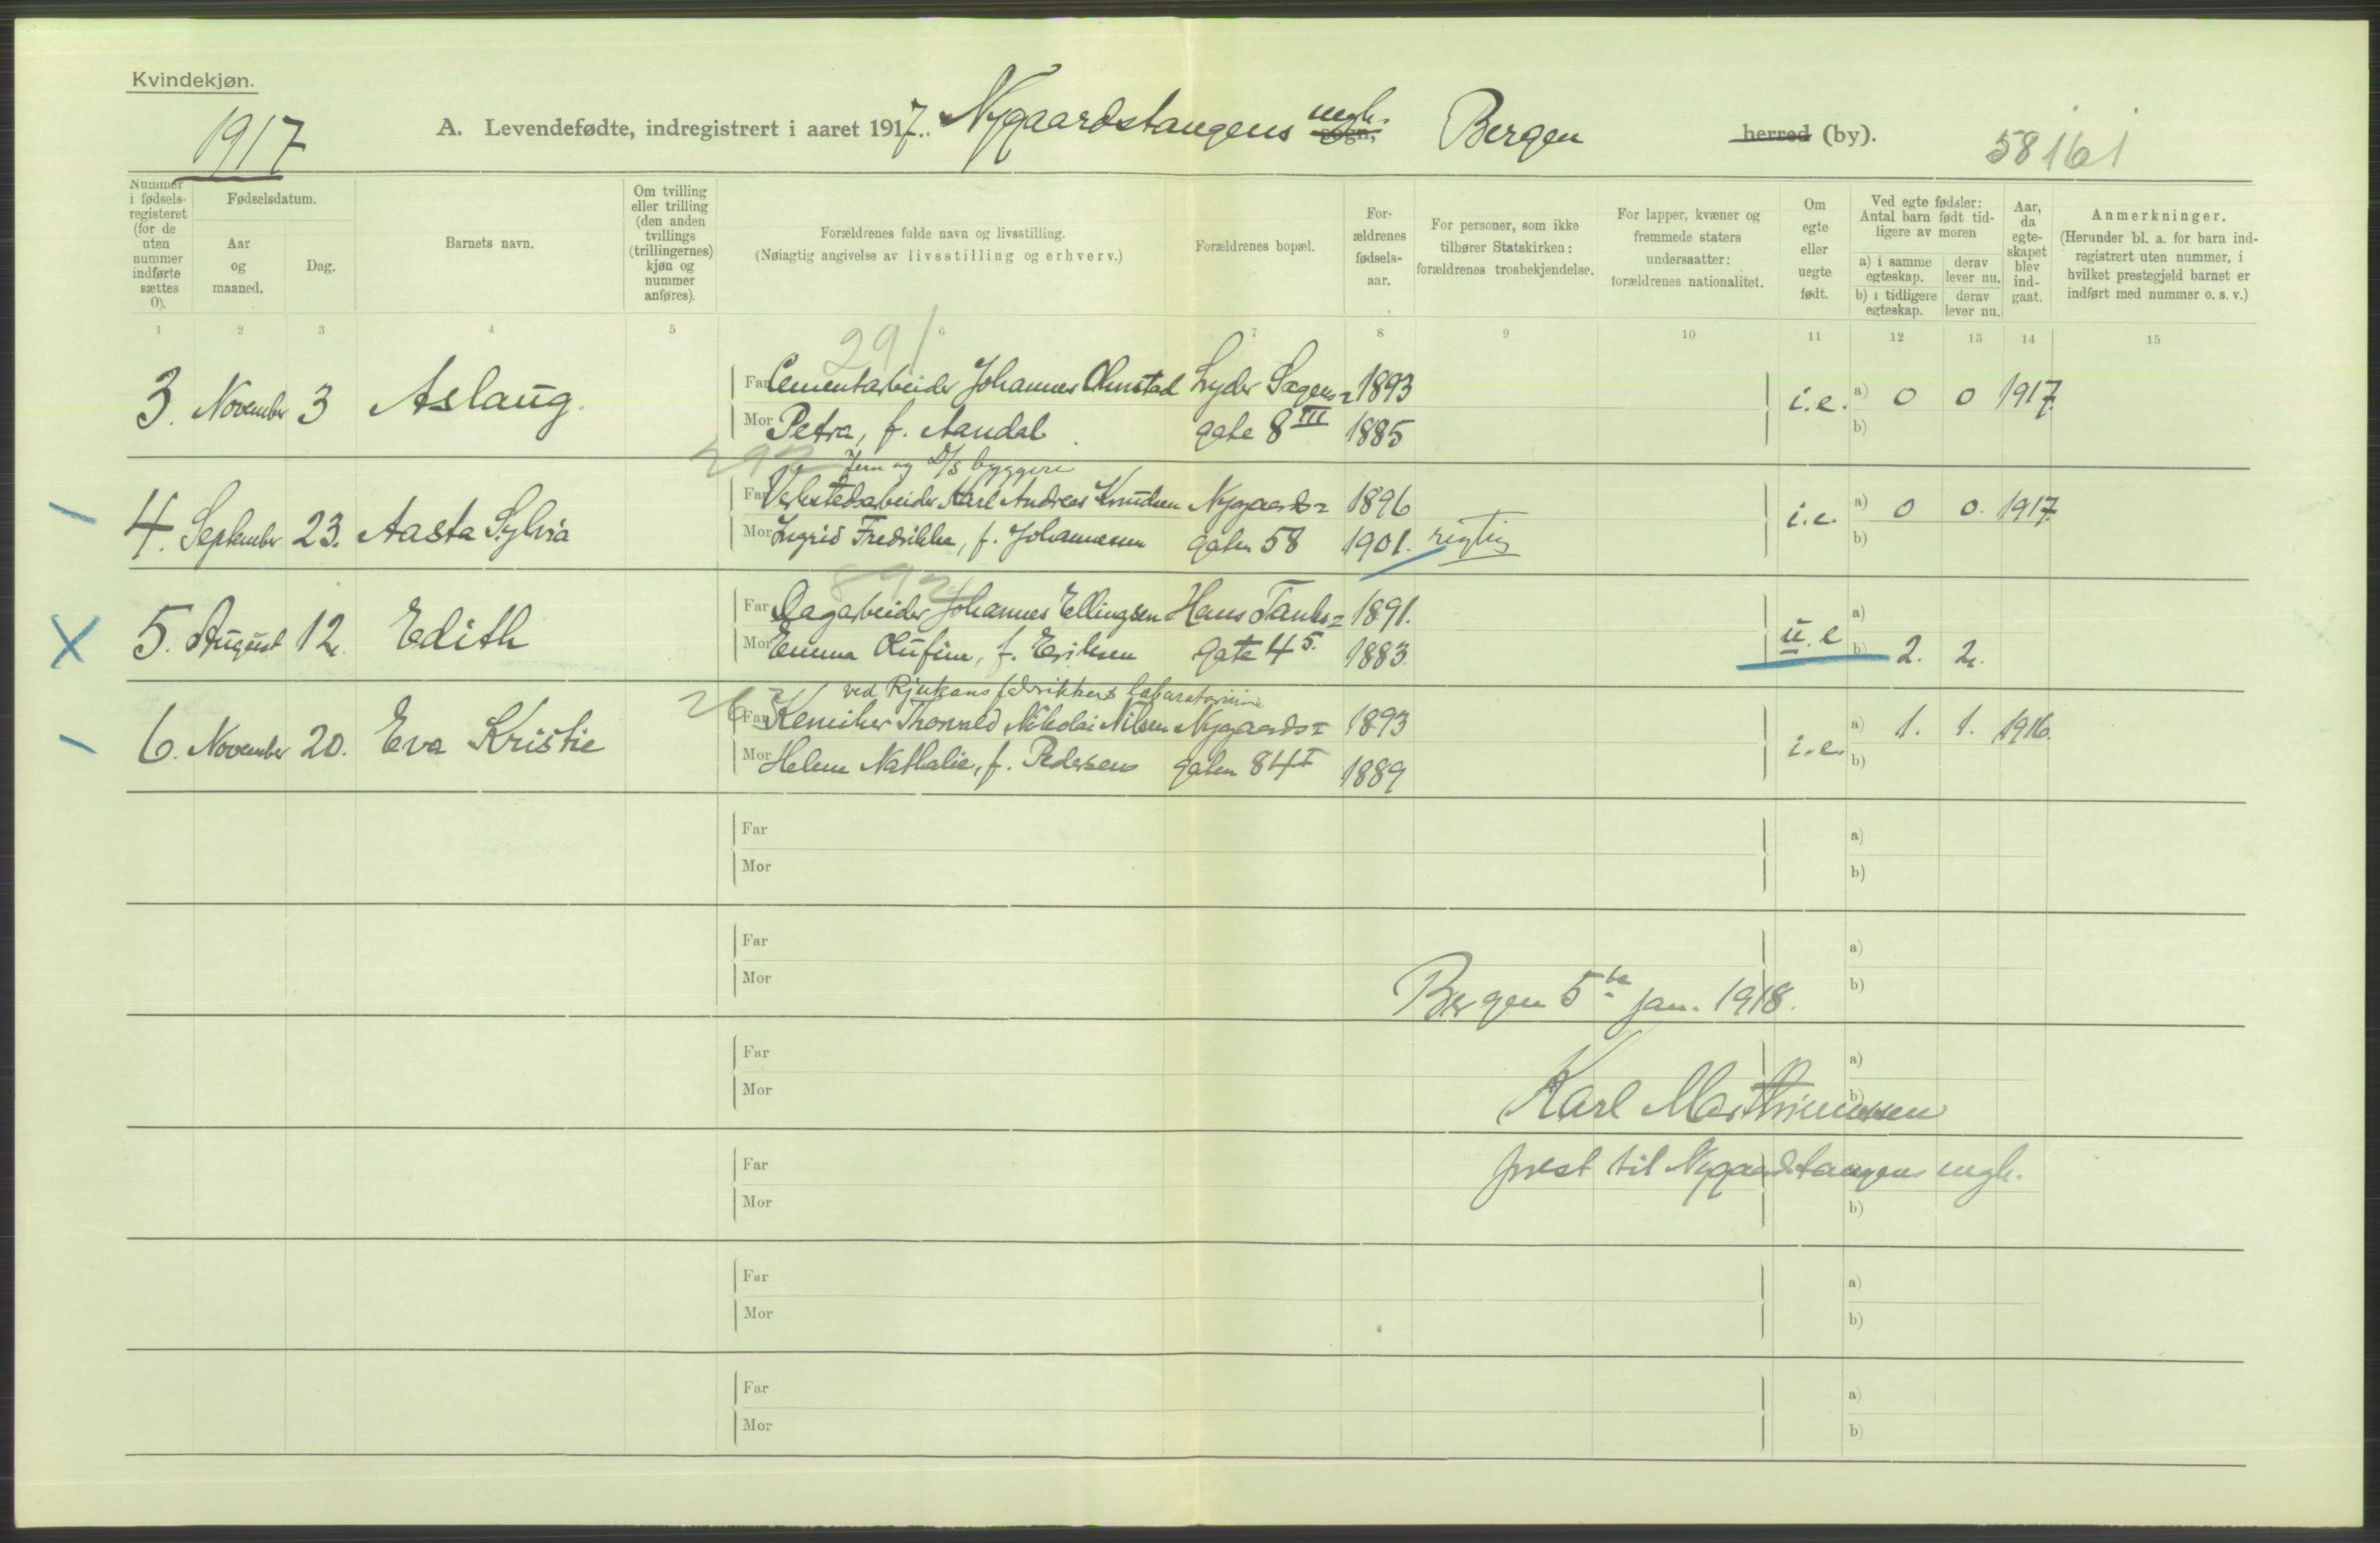 Kvindekjøn.
1917
A. Levendefødte, indregistrert i aaret 1917. Nygaardstangens sogn, mgh. Bergen herred (by).
58161
Nummer i fødsels-registeret (for de uten nummer indførte sættes 0).
Fødselsdatum.
Aar og maaned.
Dag.
Barnets navn.
Om tvilling eller trilling (den anden tvillings (trillingernes) kjøn og nummer anføres).
Forældrenes fulde navn og livsstilling.
(Nøiagtig angivelse av livsstilling og erhverv.)
Forældrenes bopæl.
For-ældrenes fødsels-aar.
For personer, som ikke tilhører Statskirken: forældrenes trosbekjendelse.
For lapper, kvæner og fremmede staters undersaatter: forældrenes nationalitet.
Om egte eller uegte født.
Ved egte fødsler: Antal barn født tid-ligere av moren
a) i samme egteskap.
derav lever nu.
b) i tidligere egteskap.
derav lever nu.
Aar, da egte-skapet blev ind-gaat.
Anmerkninger.
(Herunder bl. a. for barn ind-registrert uten nummer, i hvilket prestegjeld barnet er indført med nummer o. s. v.)
1 2 3 4 5 6 7 8 9 10 11 12 13 14 15
291
3. November 3 Aslaug. Far Cementarbeider Johannes Olmstad Lyder Sagens= 1893 i.e. a) 0 0 1917.
Mor Petra, f. Aandal gate 8 III 1885 b)
Jern og D/s byggeri
4. September 23. Aasta Sylvia Far Verkstedsarbeider Karl Andreas Knudsen Nygaards= 1896 i.e. a) 0 0. 1917.
Mor Ingrid Fredrikke, f. Johannesen gaten 58 1901. rigtig b)
5. August 12. Edith Far Dagarbeider Johannes Ellingsen Hans Tanks= 1891. u.e a)
Mor Emma Rufine, f. Eriksen gate 45. 1883. b) 2. 2.
ved Rjukans fabrikkers laboratorium
6. November 20. Eva Kristie Far Kemiker Thorvald Nikolai Nilsen Nygaards= 1893 i.e. a) 1. 1. 1916.
Mor Helene Nathalie, f. Pedersen gaten 84 I 1889 b)
Far a)
Mor b)
Far a)
Mor b)
Bergen 5te jan. 1918.
Far a)
Mor b)
Karl Marthinussen
Far
prest til Nygaardstangens mgh.
Mor b)
Far a)
Mor b)
Far a)
Mor b)